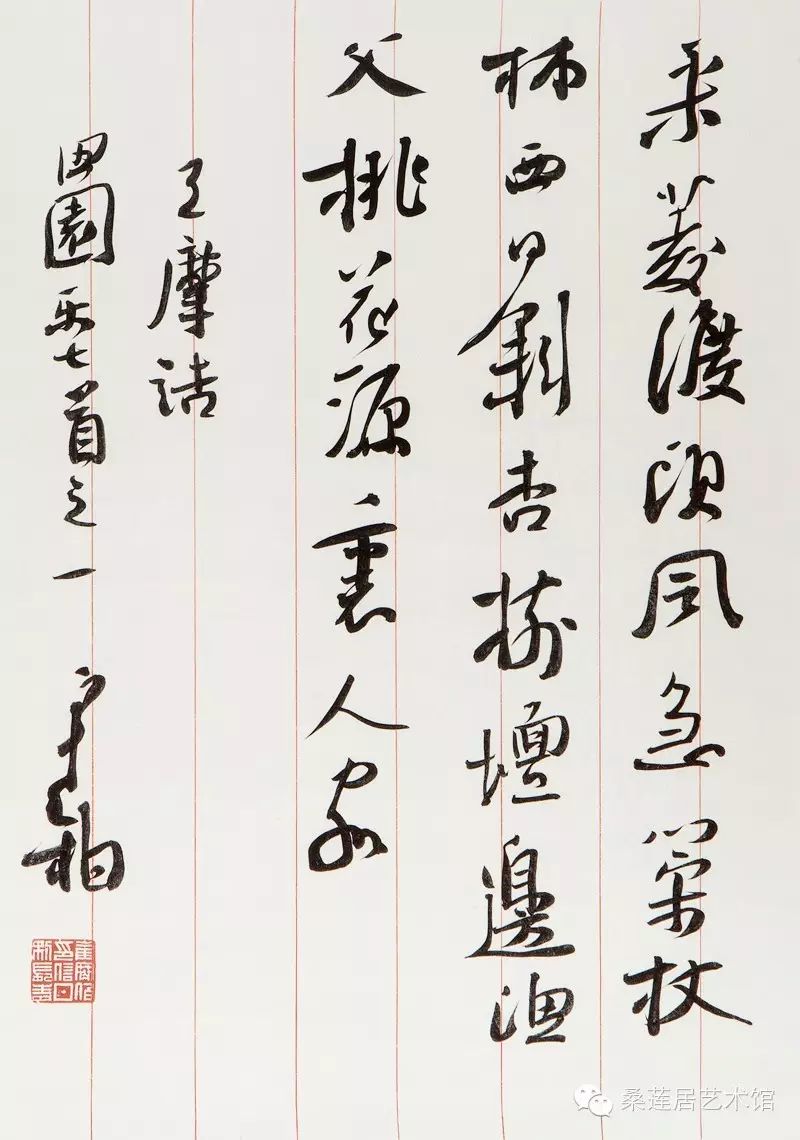 采菱渡頭風急策杖
林西日斜杏樹壇邊漁
父桃花源裏人家
王摩詰
田園樂七首之一 柏
桑莲居艺术馆